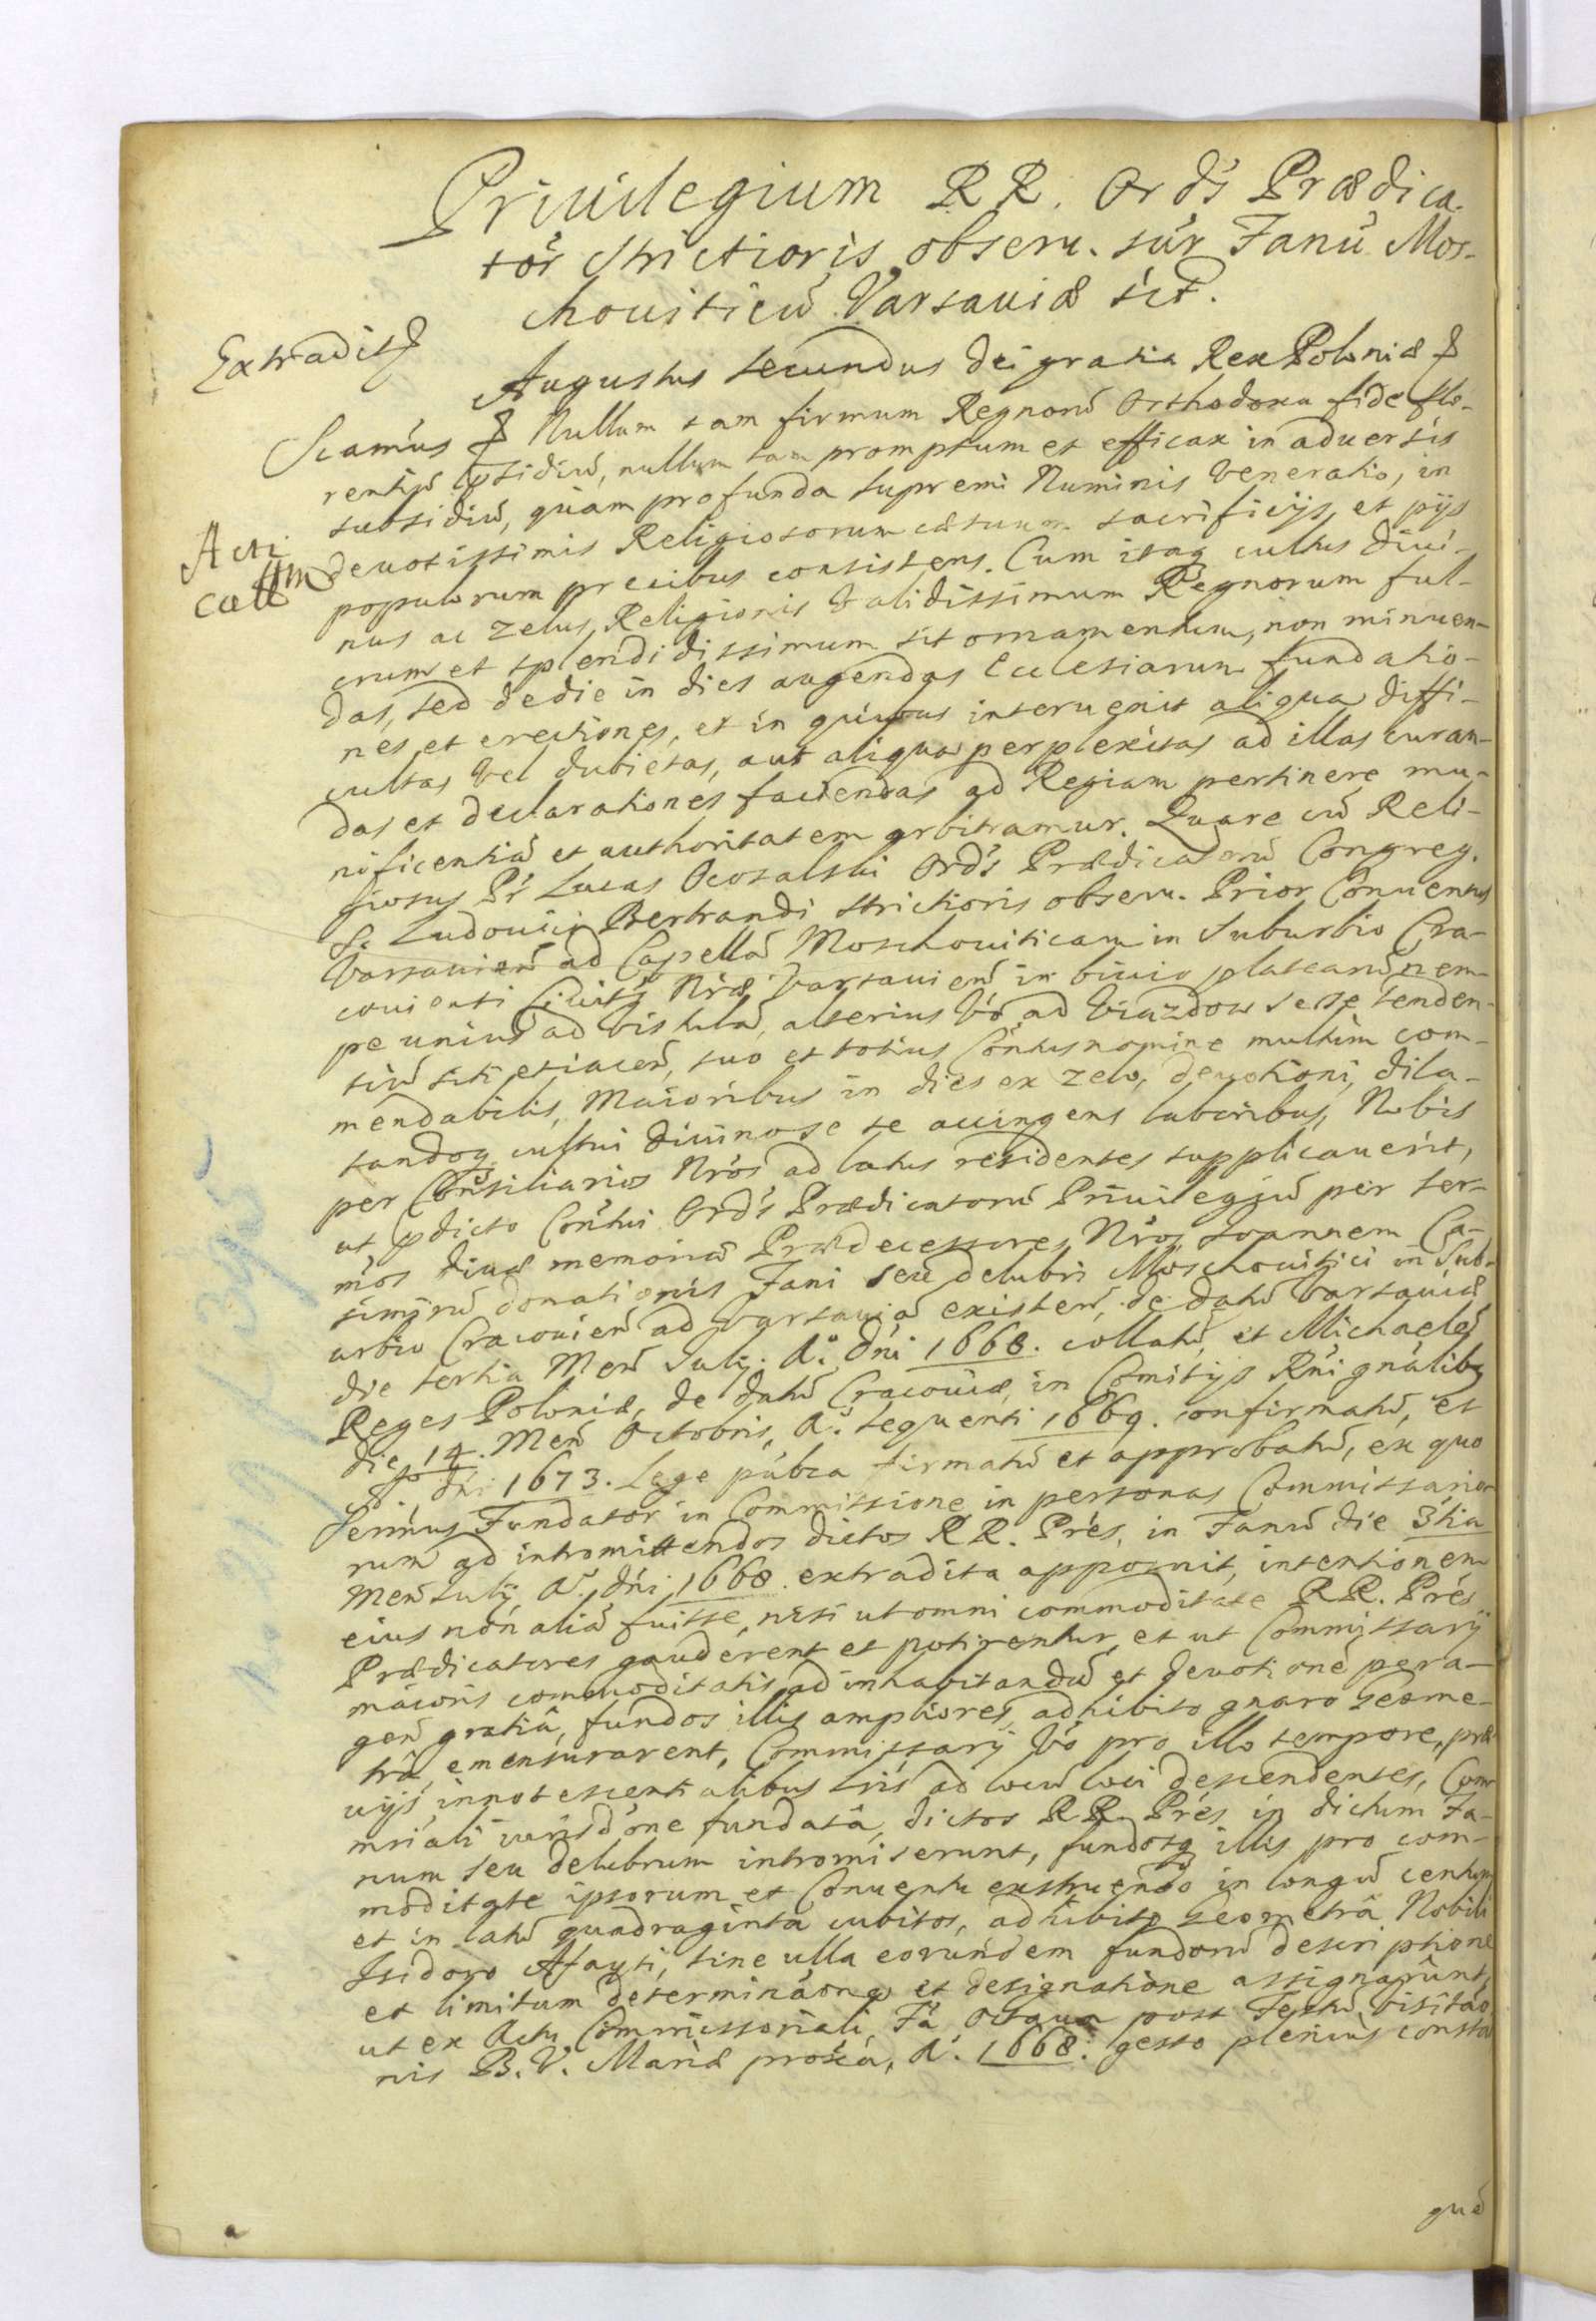 Priuilegium RR. Ord̃s Prædica-
tor̃ Strictioris obseru. sūr Fanũ Mos-
chouiticũ Varsauiæ sit̃.
Extradit̃
Augustus Secundus Dei gratia Rex Poloniæ &
Sĩamus & Nullum tam firmum Regnorũ Orthodoxa fide flo-
rentiũ p̃sidiũ, nullum tam promptum et efficax in aduersis
subsidiũ, quam profunda supremi Numinis Veneratio, in
Acti
deuotissimis Religiosorum cætuum sacrificijs, et pijs
populorum precibus consistens. Cum itaq cultus Diui-
nus ac zelus Religionis Validissimum Regnorum ful-
crum et splendidissimum sit ornamentum, non minuen-
das, sed dedie in dies augendas Ecclesiarum fundatio-
nes et erectiones, et in quibus interuenit aliqua diffi-
cultas Vel dubietas, aut aliqua perplexitas ad illas curan-
das et declarationes faciendas ad Regiam pertinere mu-
nificentiã et authoritatem arbitramur. Quare cũ Reli-
giosus Pr̃ Lucas Ord̃s Prædicatorũ Congreg.
S. Ludouici Bertrandi strictioris obseru. Prior Conuentus
Varsauien̄ ad Capellã Moschouiticam in Suburbio Cra-
couiensi Ciuit̃s Nr̃æ Varsauien̄ in biuio platearũ nem-
pe unius ad Vistulã, alterius Vó ad Viazdow sese tenden-
tiũ siti et iacen̄, suo et totius Con̄tus nomine multùm com-
mendabilis, Maioribus in dies ex zelo, deuotioni, dila-
tandoq cultui diuino se se accingens laboribus, Nobis
per Consiliarios Nr̃os ad latus residentes supplicauerit,
ut p̃dicto Con̄tui Ord̃s Prædicatorũ Priuilegiũ per ser-
m̃os diuæ memoriæ Prædecessores Nr̃os Joannem Ca-
simirũ donationis Fani seu delubri Moschouitici in Sub-
urbio Cracouien̄ ad Varsauiã existen̄, de datũ Varsauiæ
die tertia Men̄ Julij. A.° Dñi 1668. collatũ, et Michaelẽ
Reges Poloniæ, de datũ Cracouiæ in Comitijs Rñi gñalibq
die 14. Men̄ Octobris, A.° sequenti 1669. confirmatũ, et
A.° Dñi 1673. Lege públca firmatũ et approbatũ, ex quo
Serm̃us Fundator in Commissione in personas Commissario-
rum ad intromittendos dictos RR. Prẽs, in Fanũ die 3tia
Men̄ Julij A.° Dñi 1668. extradita apposuit, intentionem
eius non aliã fuisse, nisi ut omni commoditate RR. Prẽs
Prædicatores gauderent et potirentur, et ut Commissarij
maioris commoditatis ad inhabitandũ et deuotionẽ pera-
gen̄ gratiâ, fundos illis ampliores, adhibito gnaro Geome-
trâ, emensurarent, Commissarij Vó pro illo tempore, præ-
uijs innotescentialibus lr̃is ad locũ loci descendentes, Com-
mr̃iali iurisdõne fundatâ, dictos RR. Prẽs in dictum Fa-
num seu delubrum intromiserunt, fundosq illis pro com-
moditate ipsorum et Conuentu exstruendo in longũ centum
et in latũ quadraginta cubitos, adhibito Geometrâ Nobili
Isidoro Afayti, sine ulla eorundem fundorũ descriptione
et limitum determinãone et designatione assignarunt,
ut ex Actu Commissoriali, Fa Octaua post Festũ Visitão-
nis B. V. Mariæ proxa, A.° 1668. gesto plenius consta
quẽ